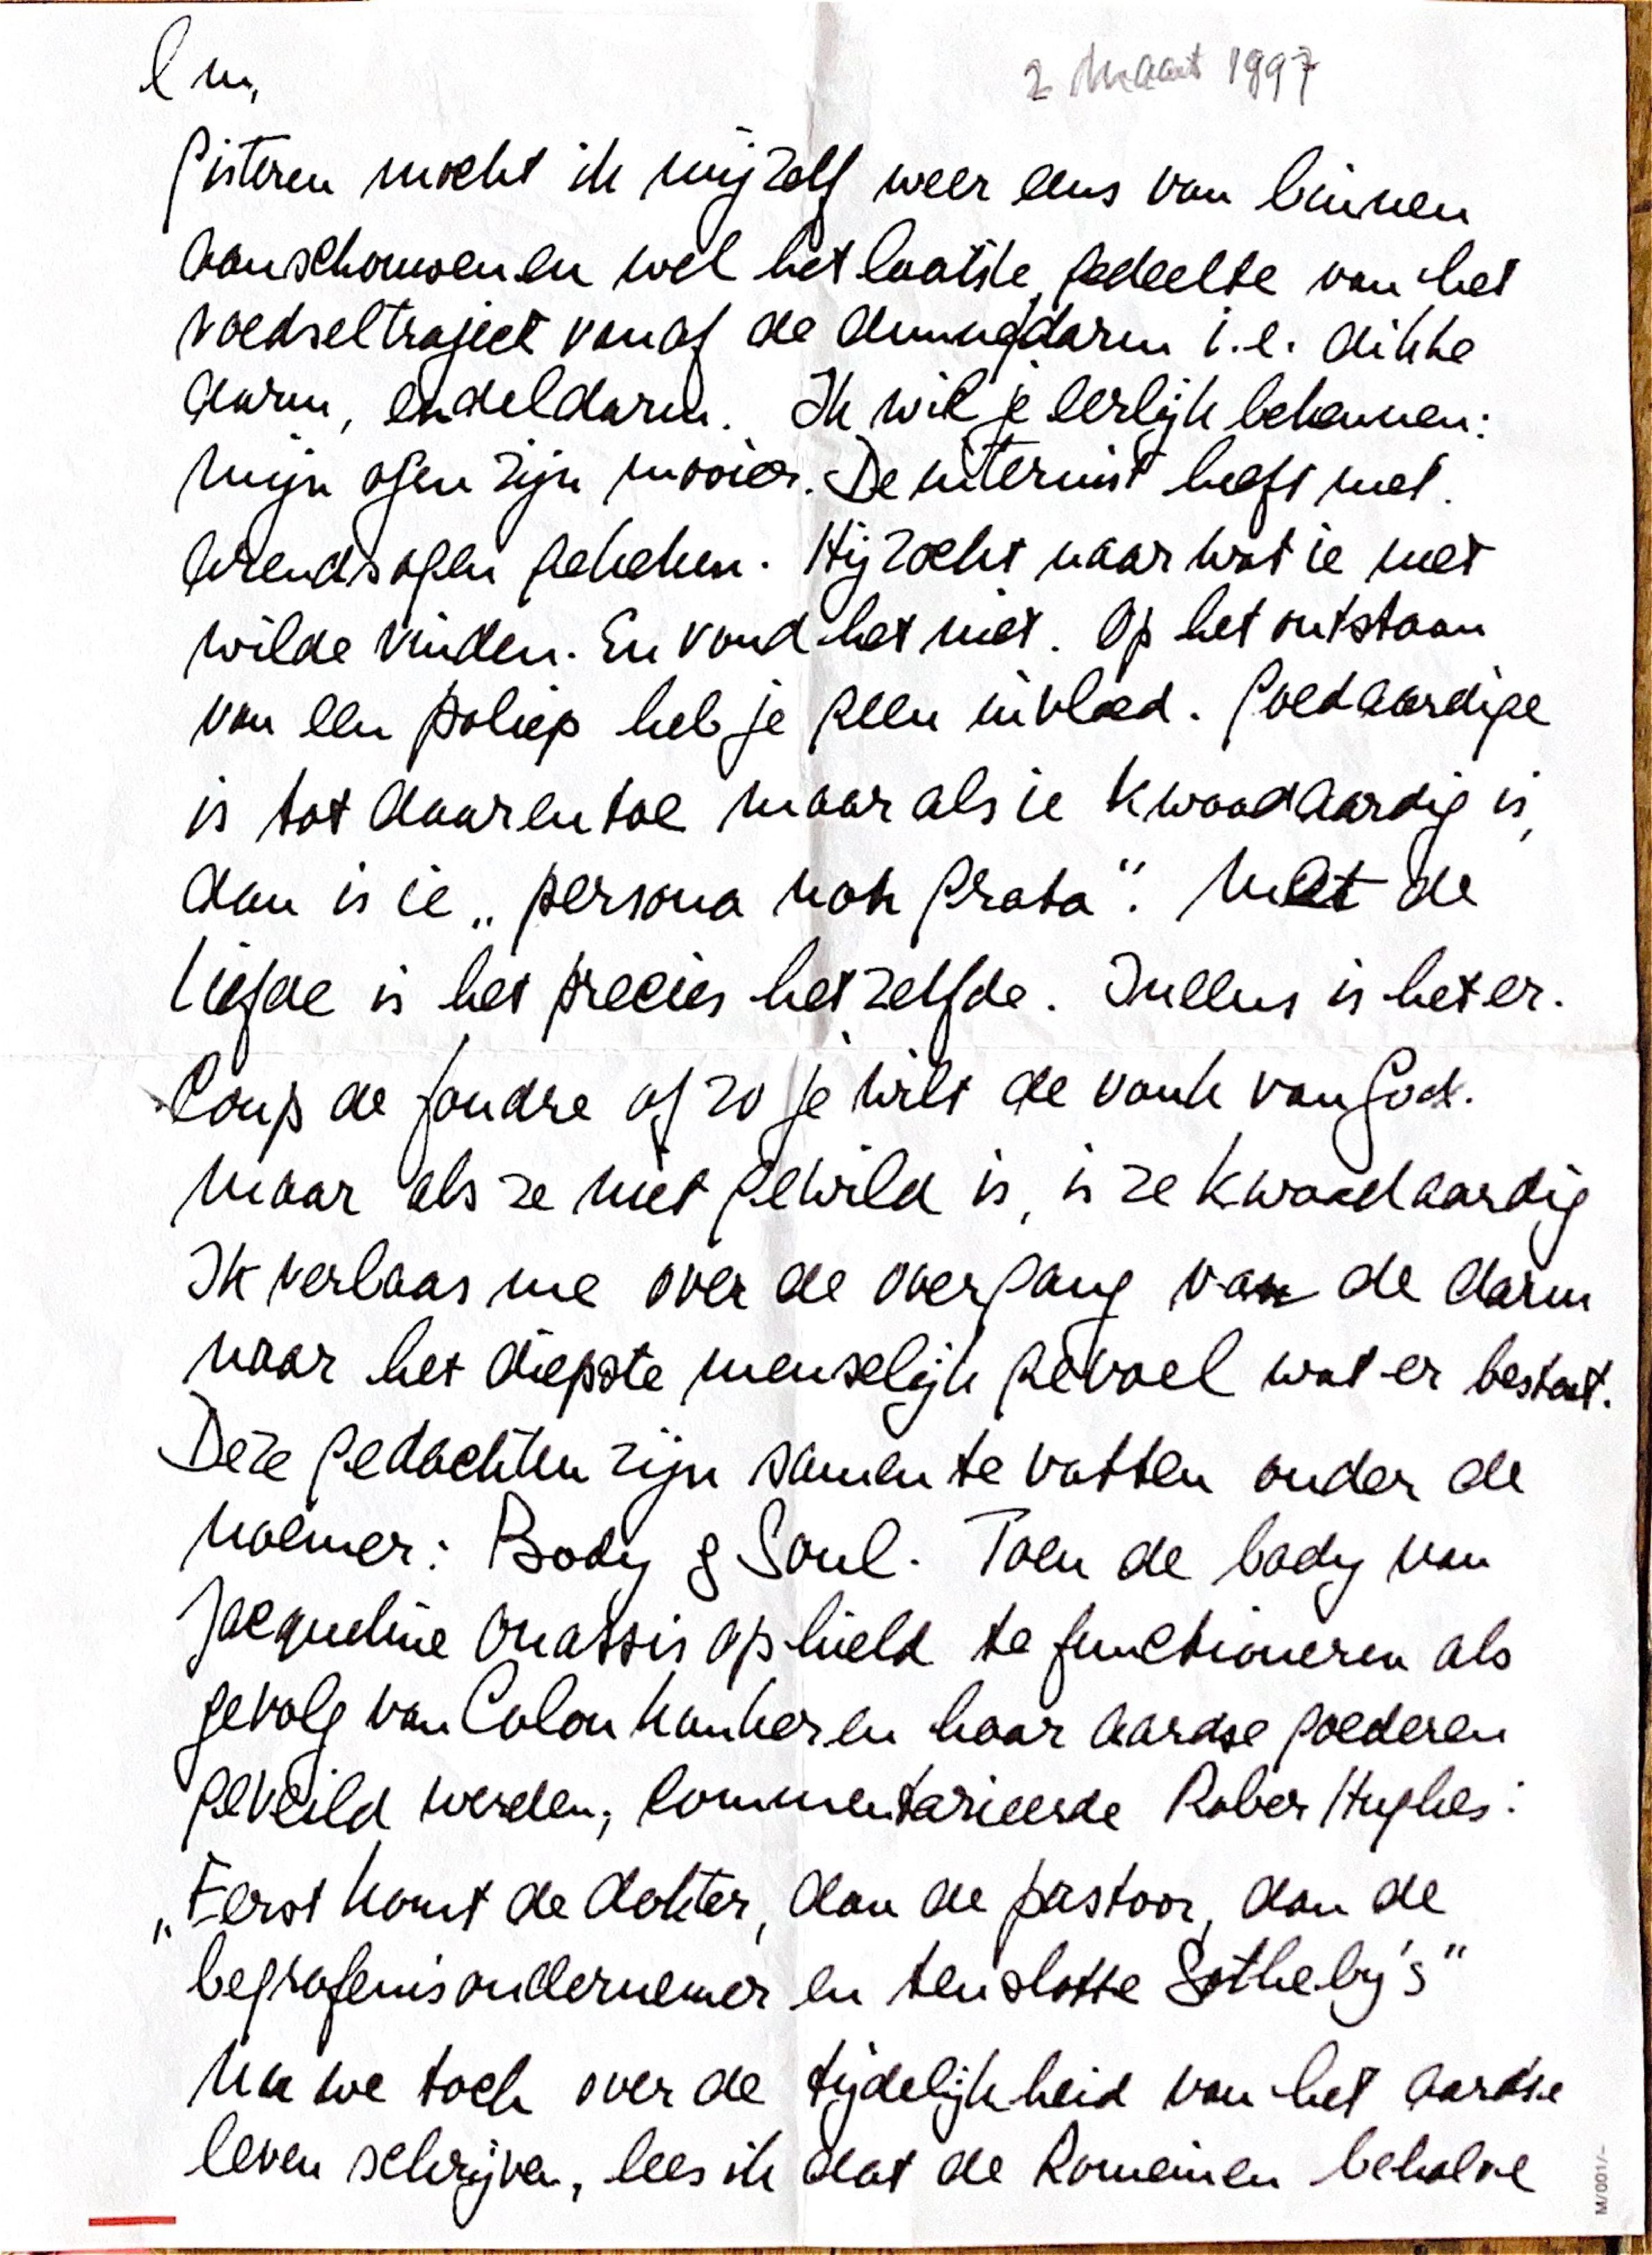 l m,
2 Maart 1997
Gisteren mocht ik mijzelf weer eens van binnen
aanschouwen en wel het laatste gedeelte van het
voedseltraject vanaf de dunne darm i.e. dikke
darm, endeldarm. Ik wil je eerlijk bekennen:
mijn ogen zijn mooier. De internist heeft met
arendsogen gekeken. Hij zocht naar wat ie niet
wilde vinden. En vond het niet. Op het ontstaan
van een poliep heb je geen invloed. Goedaardige
is tot daarentoe maar als ie kwaadaardig is,
dan is ie „persona non grata". Met de
liefde is het precies hetzelfde. Ineens is het er.
Coup de foudre of zo je wilt de vonk van God.
Maar als ze niet gewild is, is ze kwaadaardig
Ik verbaas me over de overgang van de darm
naar het diepste menselijk gevoel wat er bestaat.
Deze gedachten zijn samen te vatten onder de
noemer: Body & Soul. Toen de body van
Jacqueline Onassis ophield te functioneren als
gevolg van Colon kanker en haar aardse goederen
geveild werden, commentarieerde Rober Hughes:
„Eerst komt de dokter, dan de pastoor, dan de
begrafenisondernemer en tenslotte Sotheby's"
Nu we toch over de tijdelijkheid van het aardse
leven schrijven, lees ik dat de Romeinen behalve
M/001/-